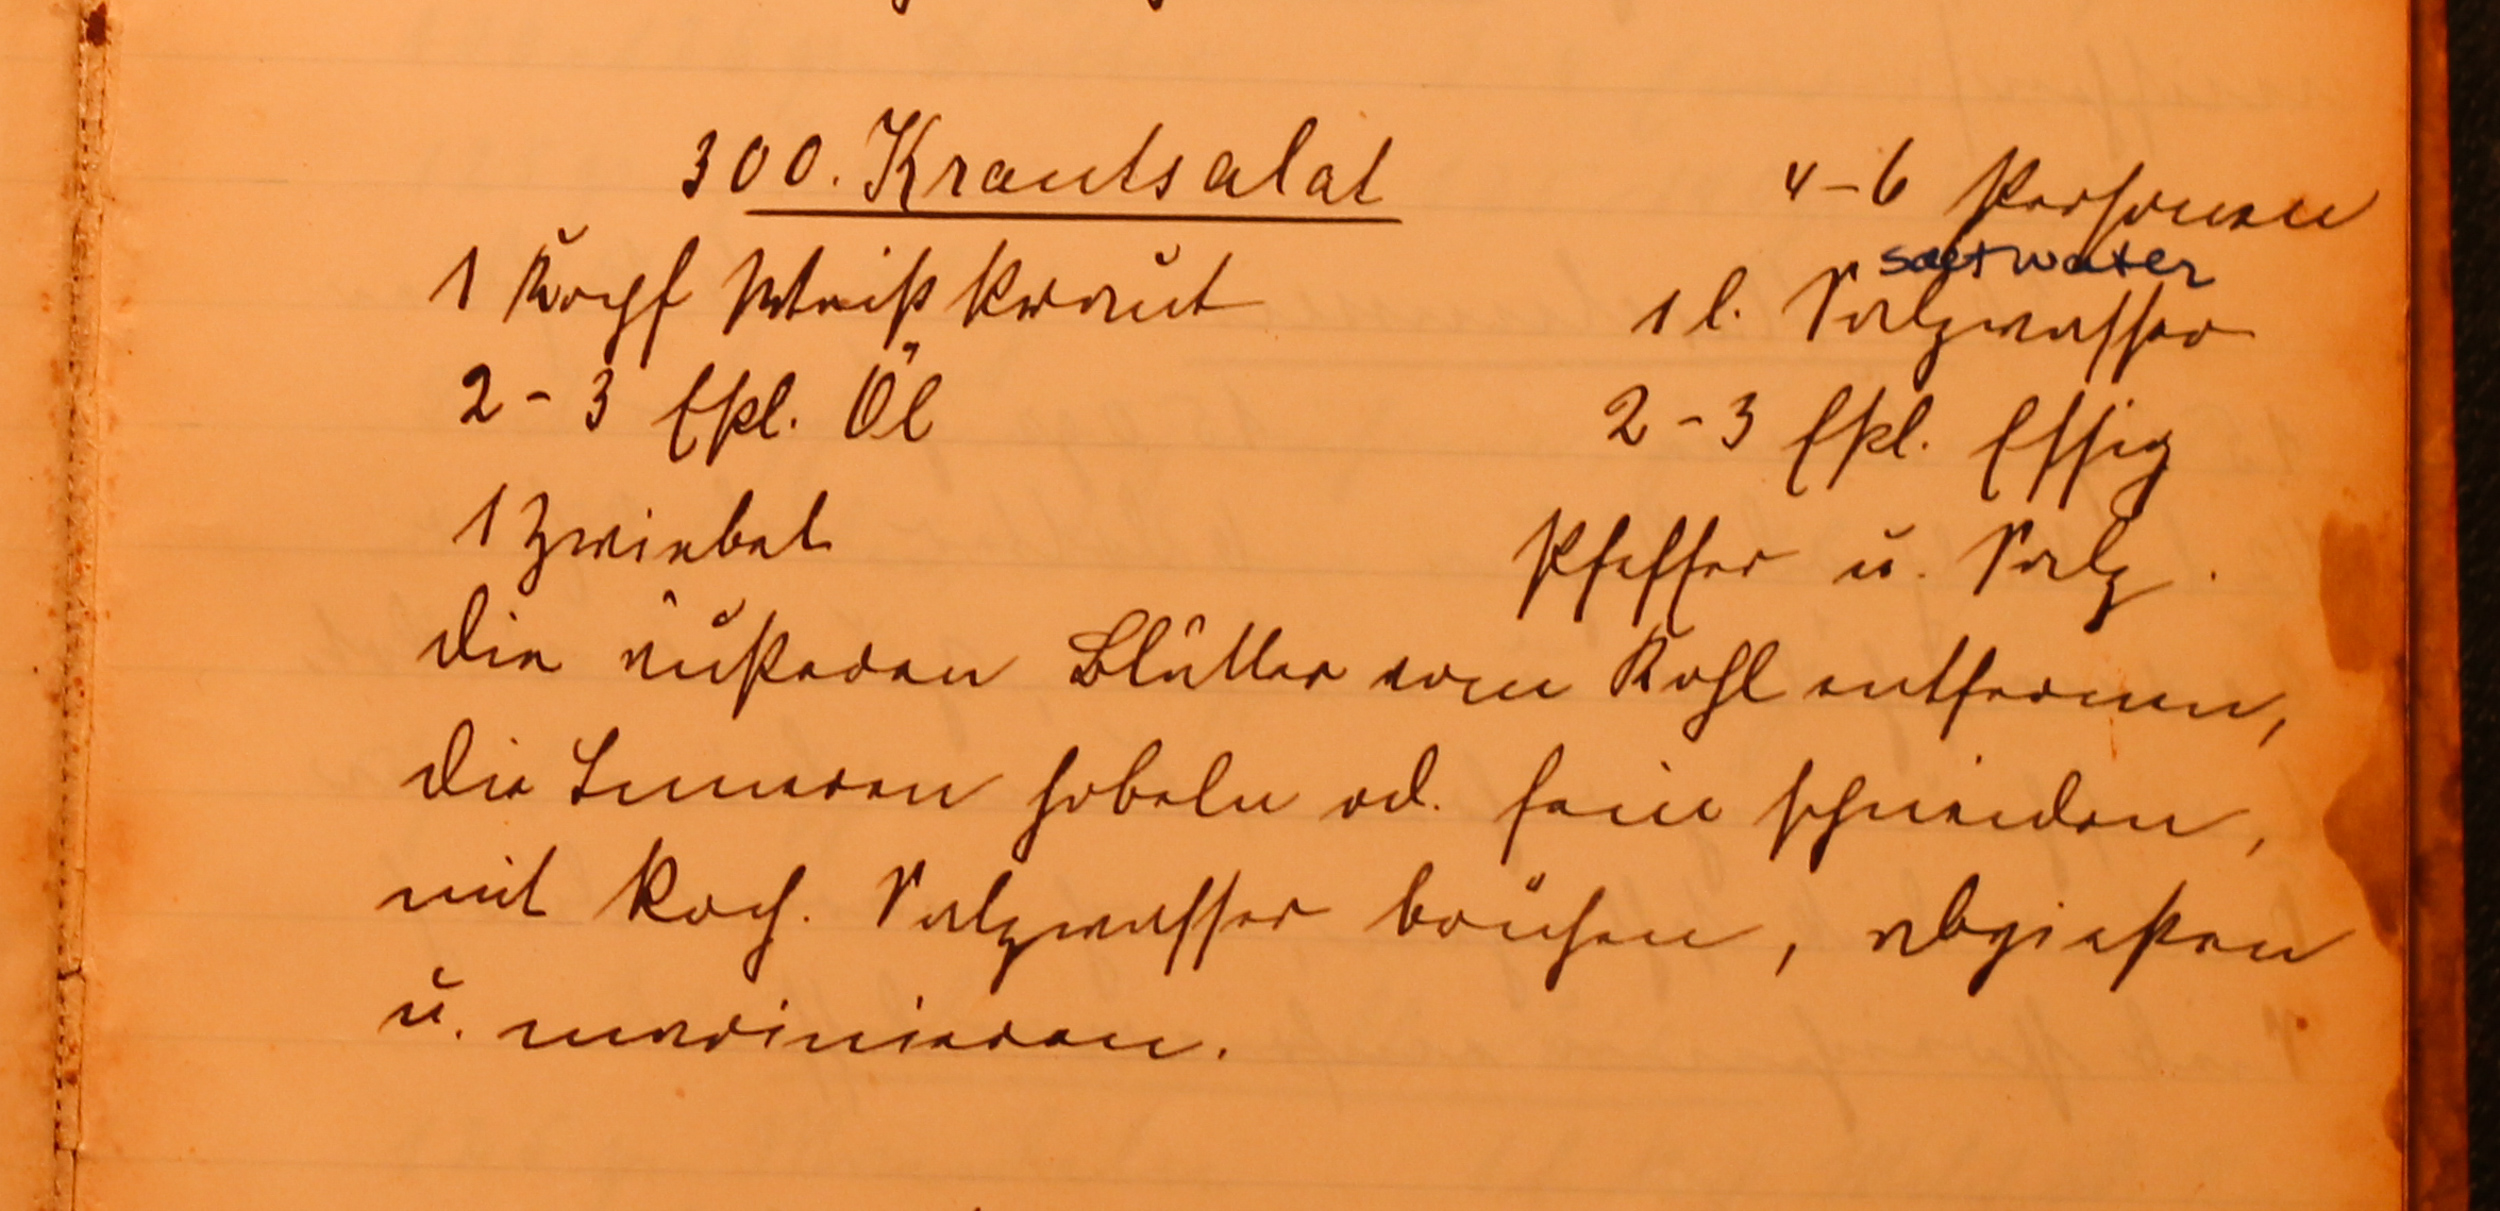 300. Krautsalat 4-6 Personen
saltwater
1 Kopf Weißkraut 1 l. Salzwasser
2-3 Eßl. Öl 2-3 Eßl. Essig
1 Zwiebel Pfeffer u. Salz.
Die äußeren Blätter vom Kohl entfernen,
die Inneren hobeln od. fein schneiden,
mit koch. Salzwasser brühen, abgießen
u. marinieren.